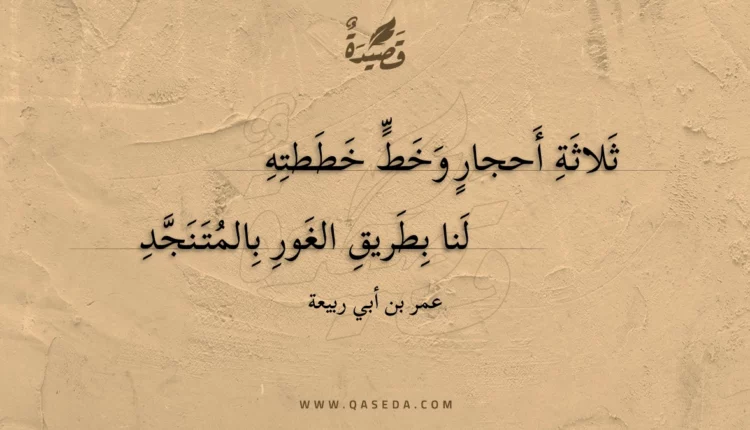 قَصِيدَةٌ
ثَلاثَةِ أَحجارٍ وَخَطٍّ خَطَطتِهِ
لَنا بِطَريقِ الغَورِ بِالمُتَنَجَّدِ
عمر بن أبي ربيعة
WWW.QASEDA.COM